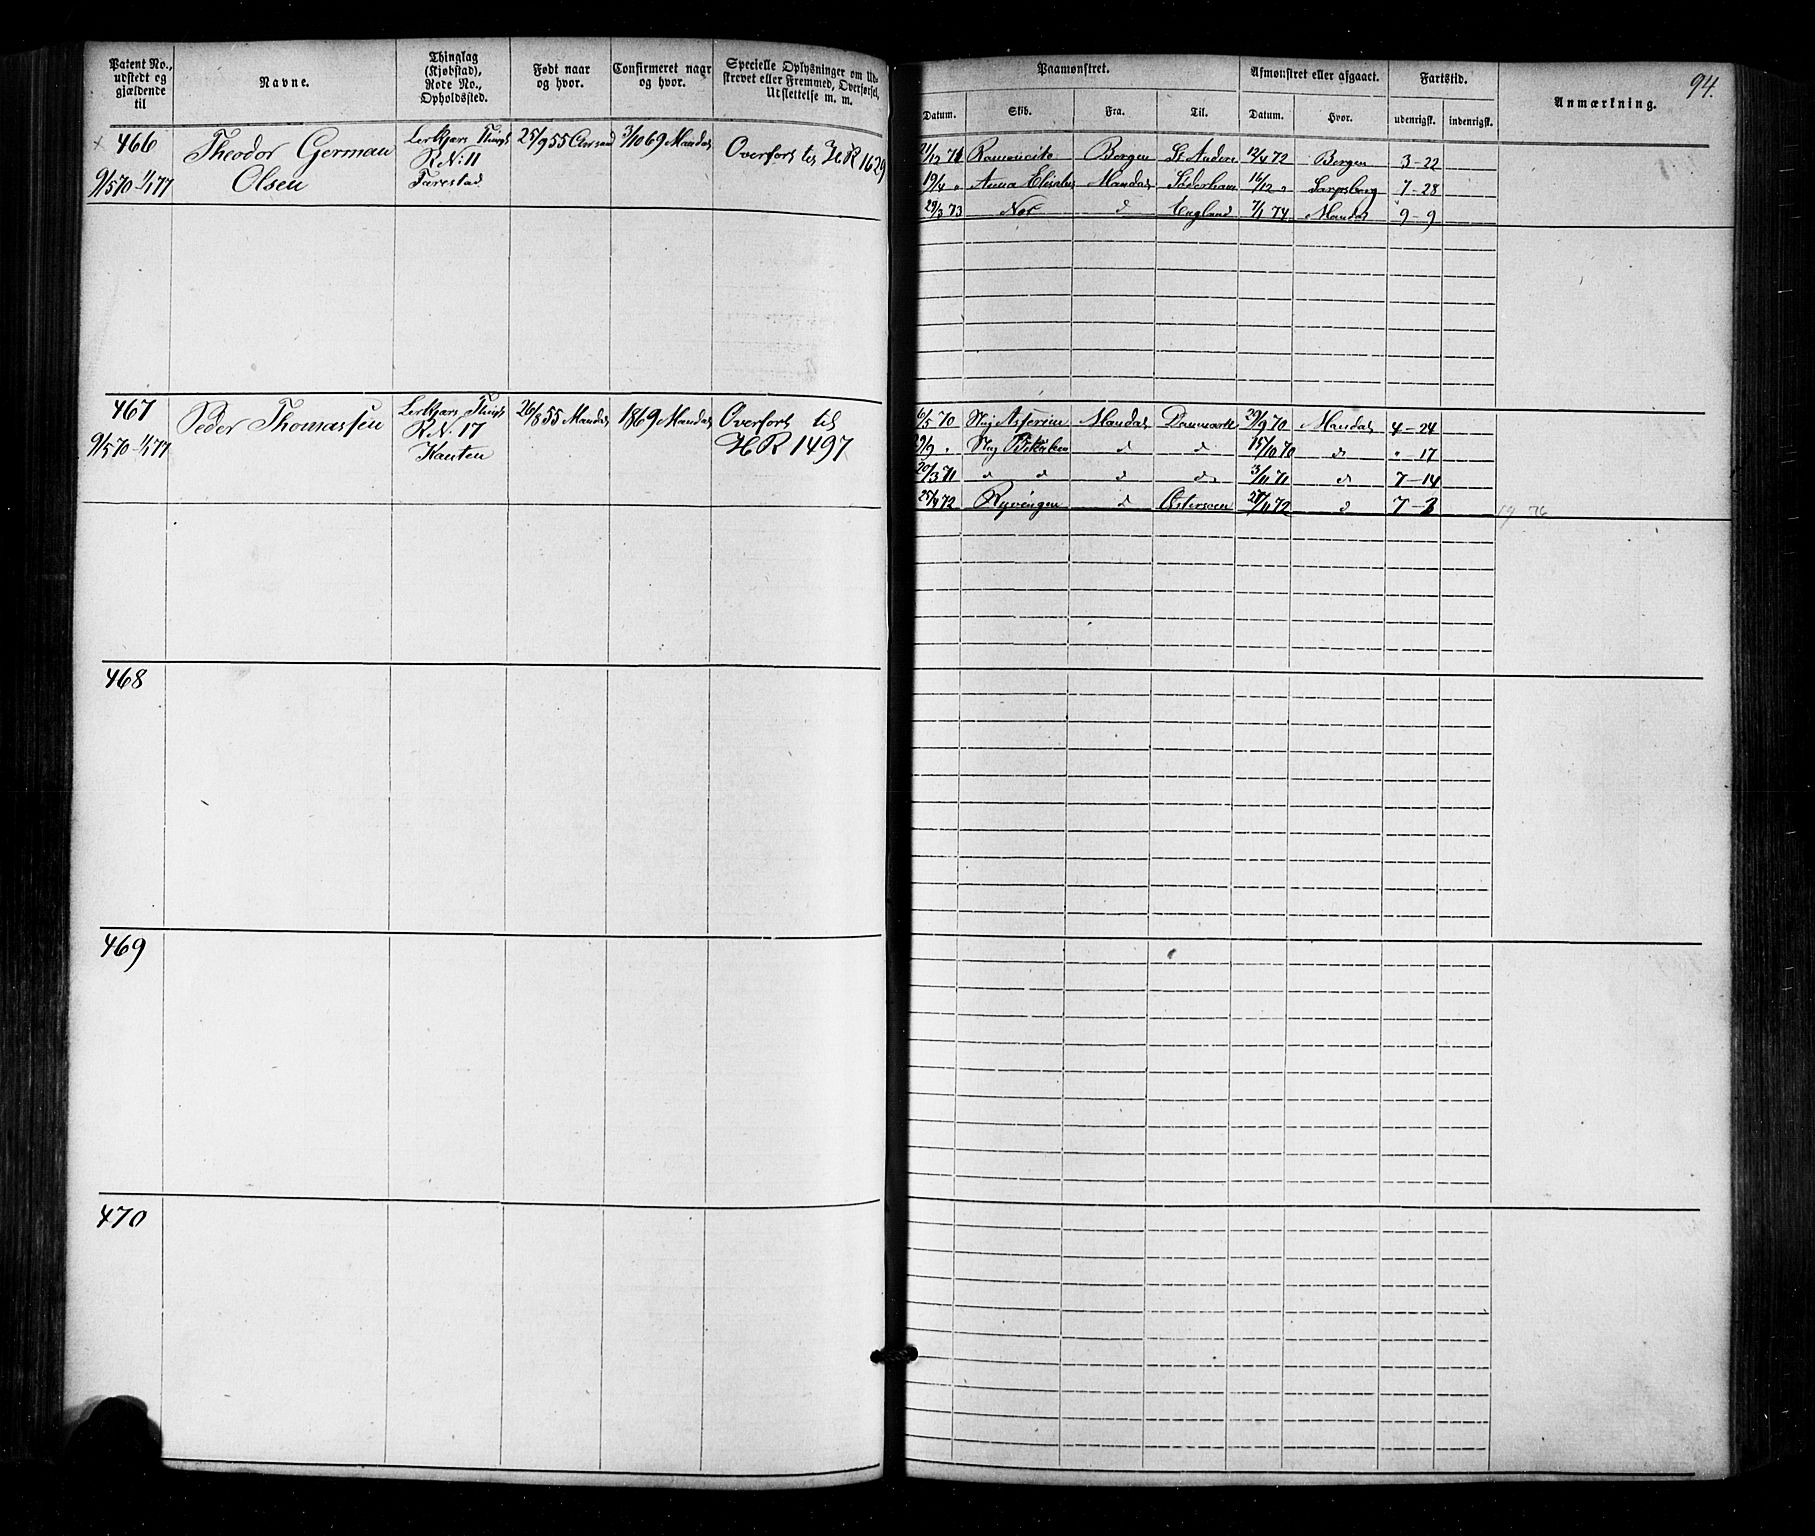 94.
Patent No., udstedt og gjældende til
Navne.
Thinglag (Kjøbstad), Rode No., Opholdssted.
Født naar og hvor.
Confirmeret naar og hvor.
Specielle Oplysninger om Udskrevet eller Fremmed, Overførsel, Utslettelse m. m.
Paamønstret.
Afmønstret eller afgaaet.
Fartstid.
Anmærkning.
Datum. Skib. Fra. Til. Datum. Hvor. udenrigsk. indenrigsk.
466 Theodor German Olsen
9/5 70 1/1 77
R N: 11
Farestad
25/9 55
3/10 69 Mandal
Overført til HR 1629
21/12 71 Bergen St Andero 12/4 72 Bergen 3-22
19/4 " Anna Elisabeth Mandal Söderhamn 16/12 " Sarpsborg 7-28
29/3 73 Nor d England 7/1 74 Mandal 9-9
467 Peder Thomassen
9/5 70 - 1/1 77
R N: 17
26/8 55 Mandal
1869 Mandal
Overført til
HR 1497
6/5 70 Mandal Danmark 29/9 70 Mandal 4-24
d d 15/10 70 d " -17
20/3 71 d d d d 3/11 71 d 7-14
25/4 72 Ryvingen d Østersøen 27/11 72 d 7-3
468
469
470